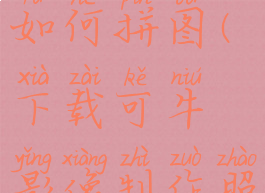 如何拼图(
xià zài kě niú
下载可牛
yǐng xiàng zhì zuò zhào
影像制作照